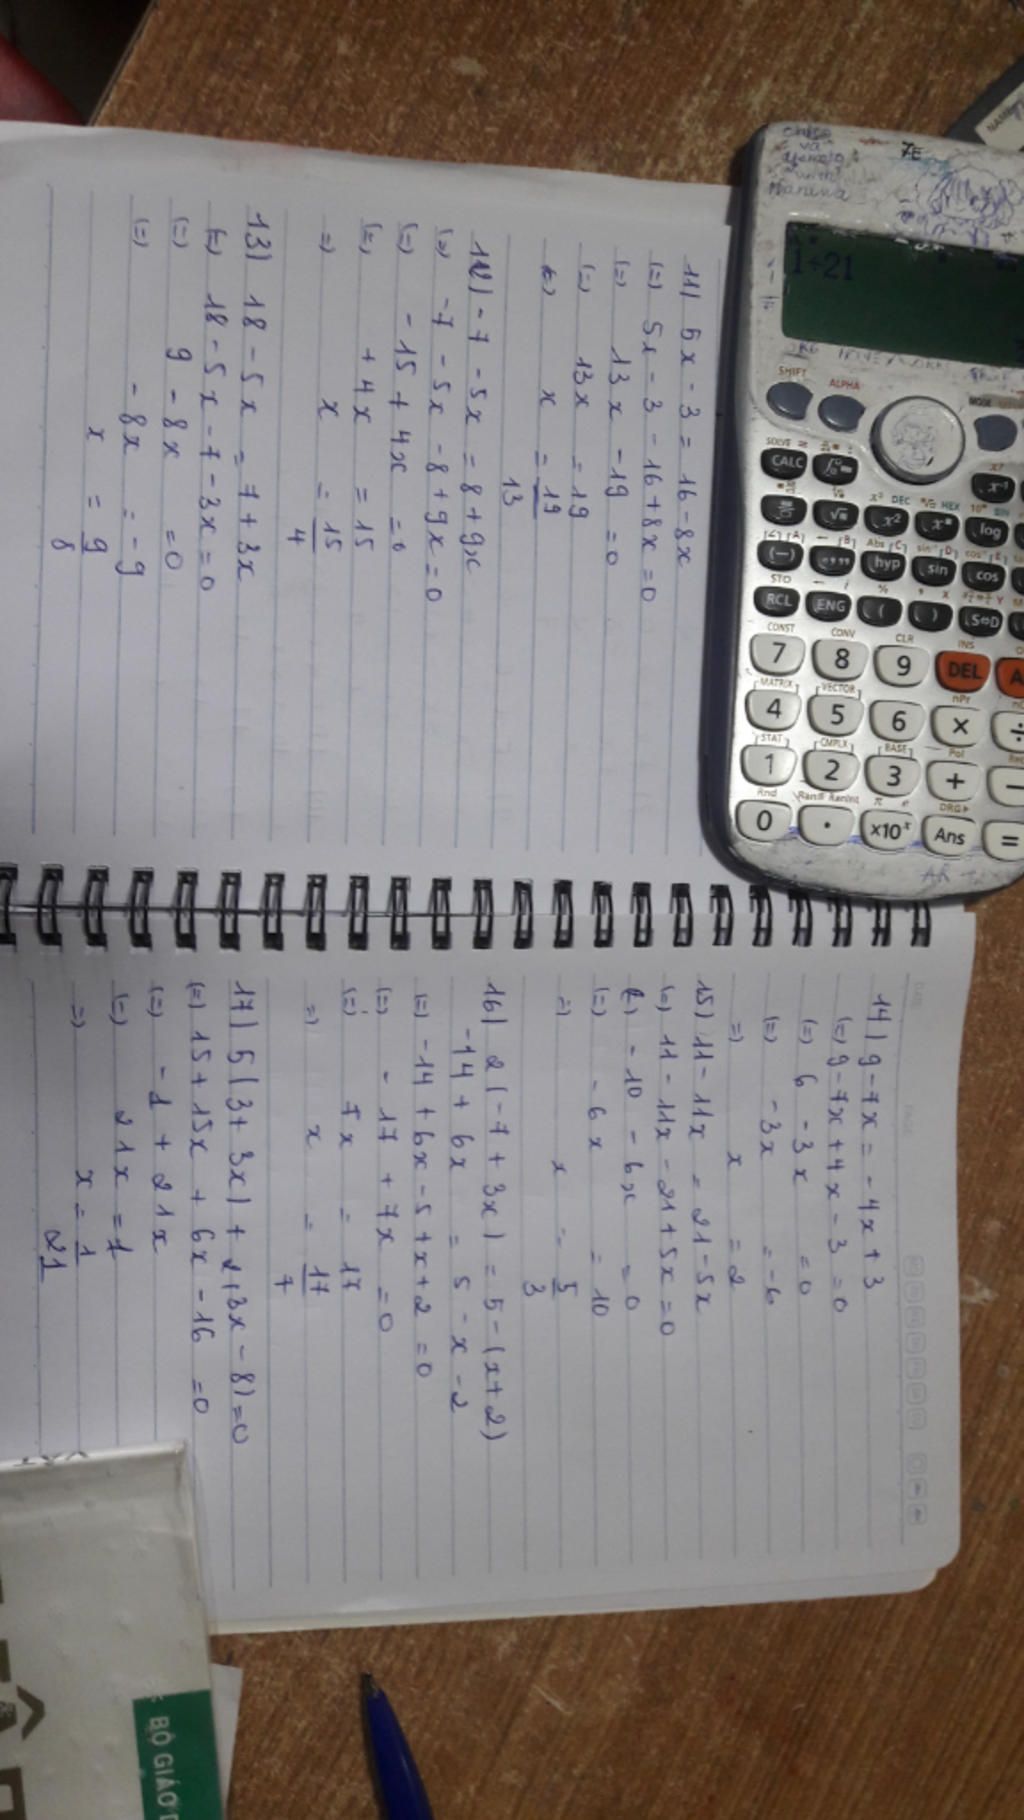 11) 5x - 3 = 16 - 8x
(=) 5x - 3 - 16 + 8x = 0
(=) 13x - 19 = 0
(=) 13x = 19
(=) x = 19/13
12) -7 - 5x = 8 + 9x
(=) -7 - 5x - 8 + 9x = 0
(=) -15 + 4x = 0
(=) +4x = 15
=) x = 15/4
13) 18 - 5x = 7 + 3x
(=) 18 - 5x - 7 - 3x = 0
(=) 9 - 8x = 0
(=) -8x = -9
x = 9/8
14) 9 - 7x = -4x + 3
(=) 9 - 7x + 4x - 3 = 0
(=) 6 - 3x = 0
(=) -3x = -6
=) x = 2
15) 11 - 11x = 21 - 5x
(=) 11 - 11x - 21 + 5x = 0
(=) -10 - 6x = 0
(=) -6x = 10
=) x = - 5/3
16) 2(-7 + 3x) = 5 - (x + 2)
-14 + 6x = 5 - x - 2
(=) -14 + 6x - 5 + x + 2 = 0
(=) -17 + 7x = 0
(=) 7x = 17
=) x = 17/7
17) 5(3 + 3x) + 2(3x - 8) = 0
(=) 15 + 15x + 6x - 16 = 0
(=) -1 + 21x
(=) 21x = 1
=) x = 1/21
DATE
PAGE
7E
1÷21
SHIFT
ALPHA
MODE
SOLVE =
CALC
x⁻¹
x² DEC
HEX
BIN
x²
log
(-)
hyp
sin
cos
STO
RCL
ENG
(
)
S⇔D
CONST
CONV
CLR
INS
7
8
9
DEL
MATRIX
VECTOR
nPr
4
5
6
×
÷
STAT
CMPLX
BASE
Pol
1
2
3
+
−
Rnd
Ran# RanInt
π e
DRG▸
0
.
×10ˣ
Ans
=
BỘ GIÁO